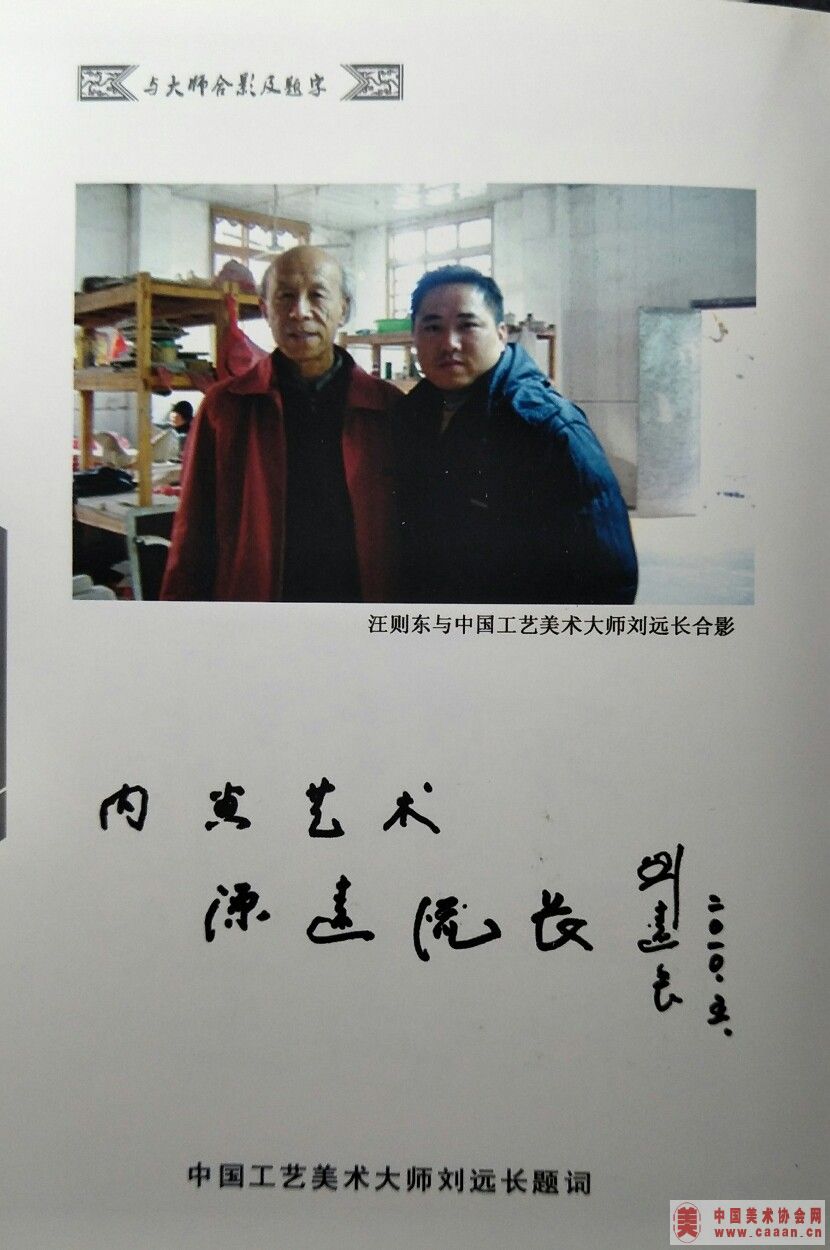 与大师合影及题字
汪则东与中国工艺美术大师刘远长合影
内画艺术
源远流长
刘远长
二〇一〇.五.
中国工艺美术大师刘远长题词
美
中国美术协会网
www.caaan.cn